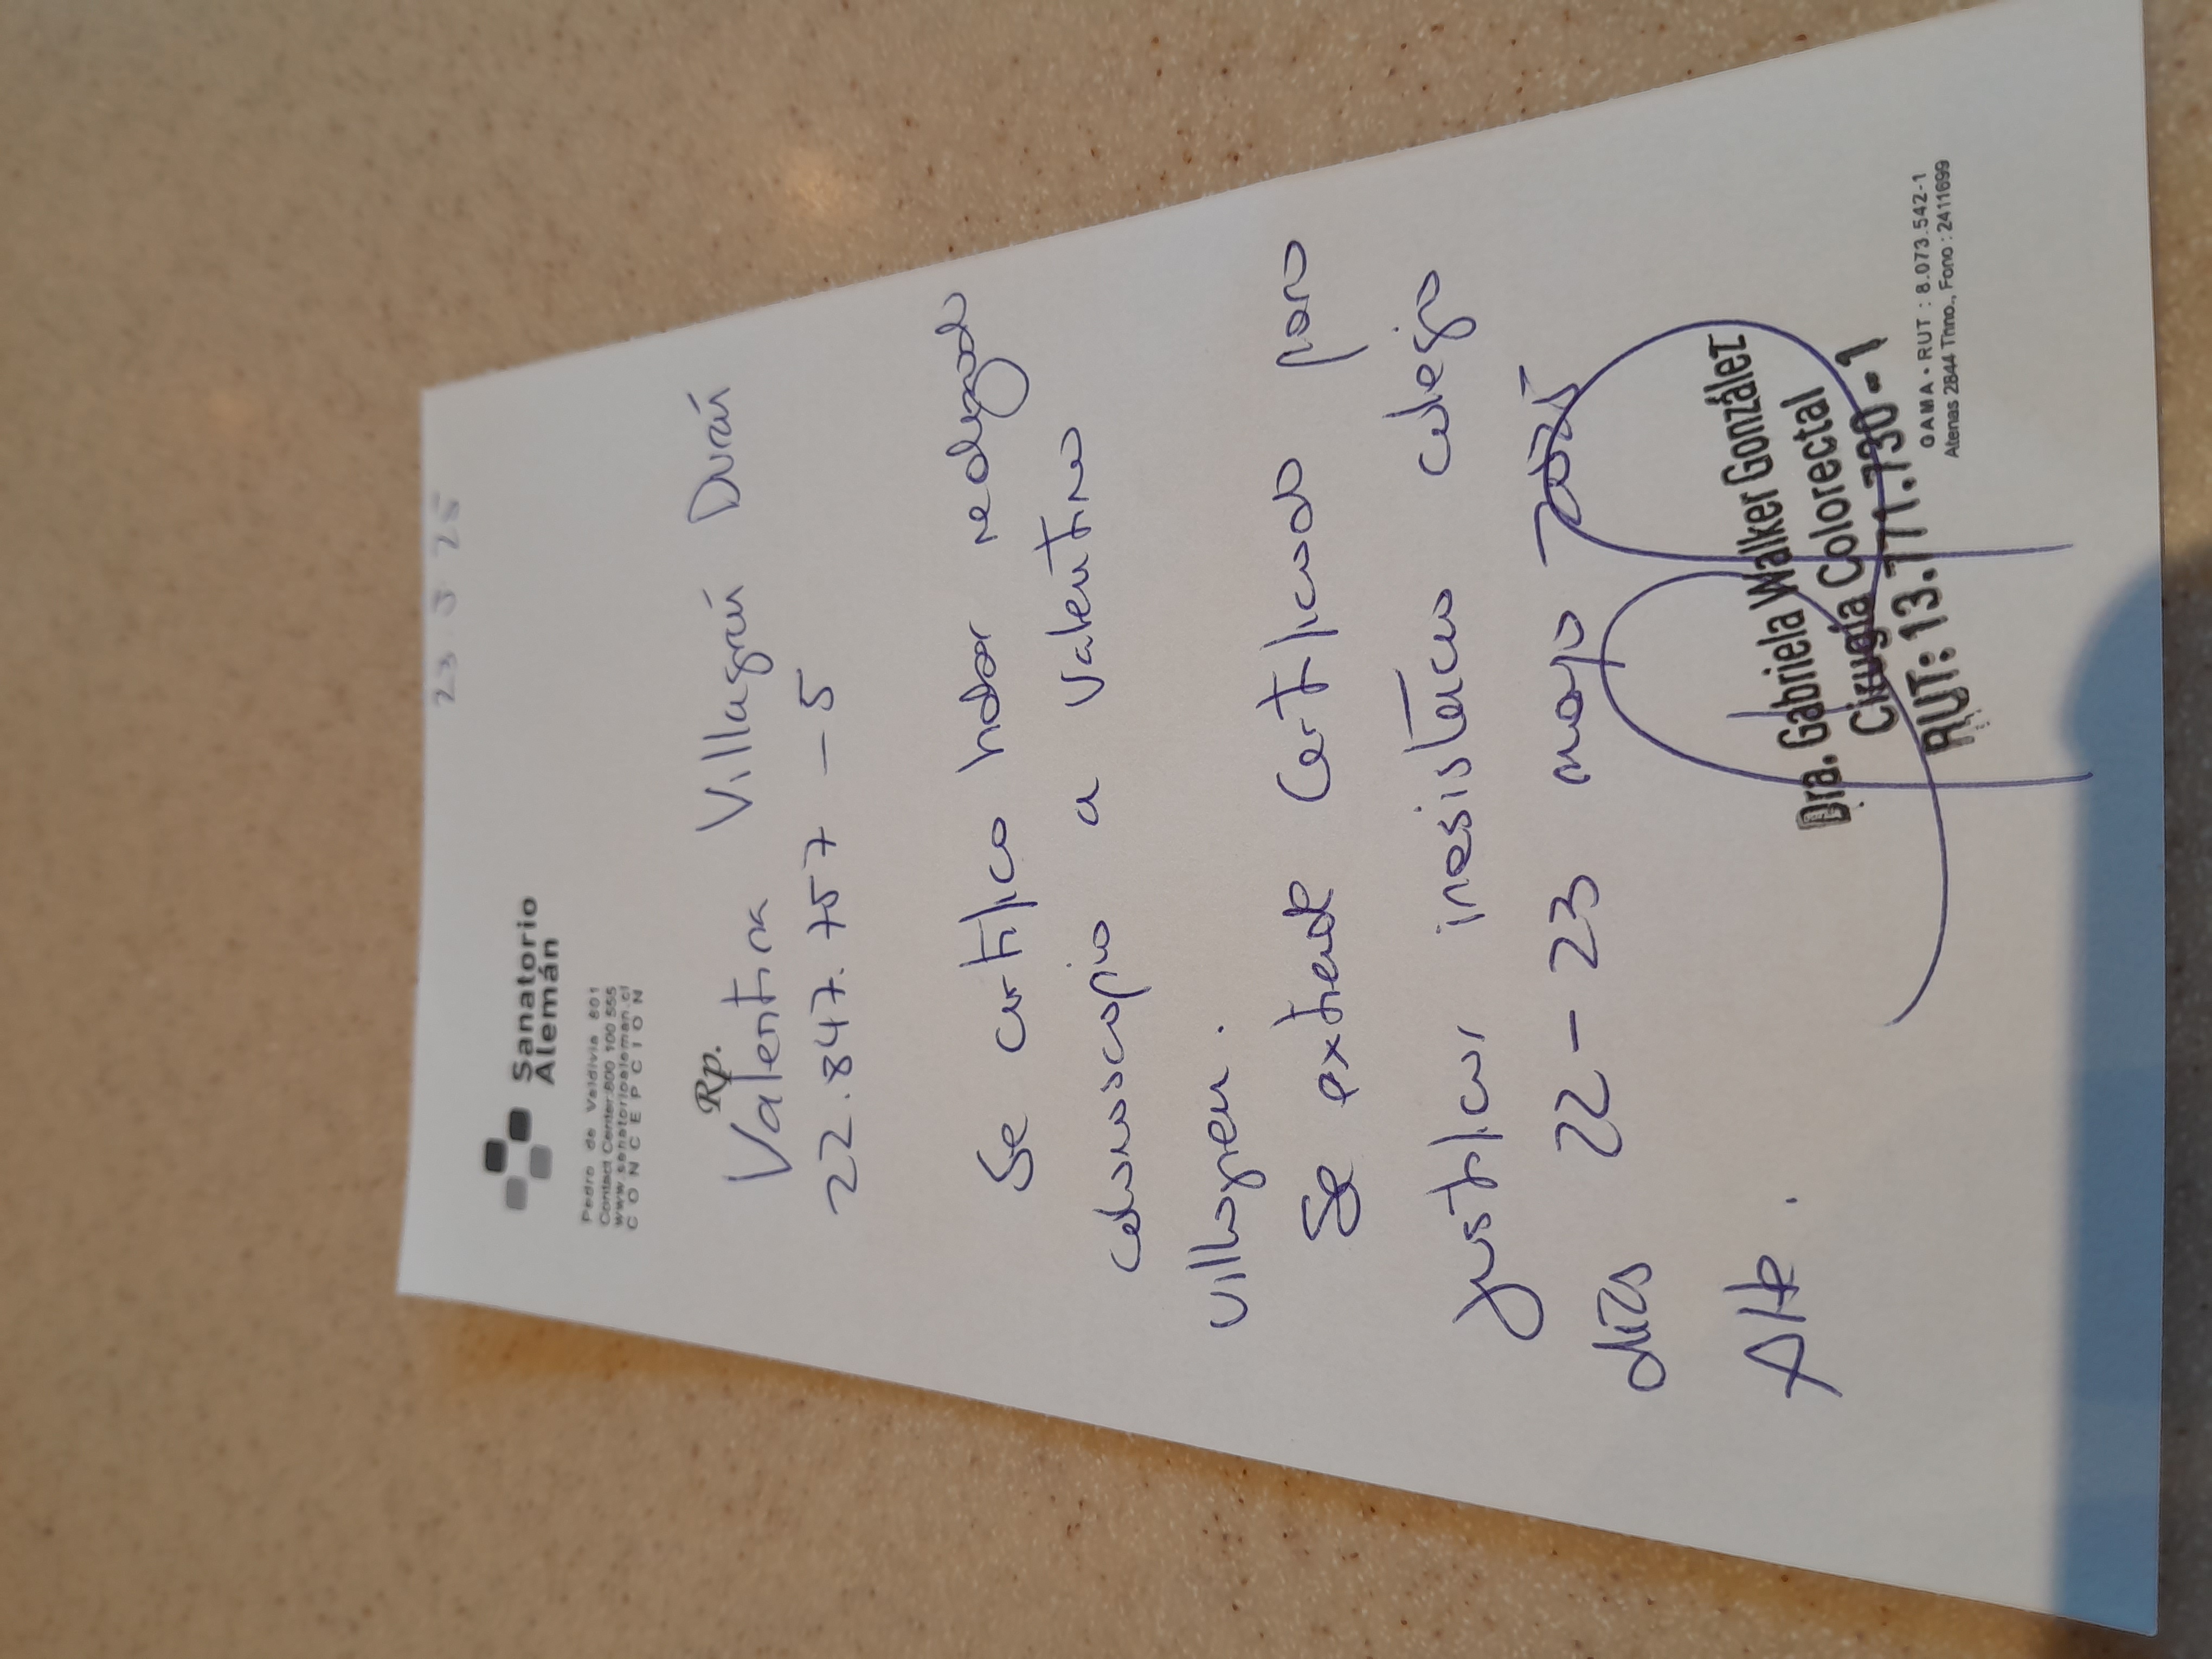 23 5 25
Sanatorio
Alemán
Pedro de Valdivia 801
Contact Center: 800 100 555
www.sanatorioaleman.cl
CONCEPCION
Rp.
Valentina Villagrán Durán
22.847.757-5
Se certifica haber realizado
colonoscopia a Valentina
Villagran.
Se extiende certificado para
justificar inasistencia colegio
días 22-23 mayo 2025
Atte.
Dra. Gabriela Walker González
Cirugía Colorectal
RUT: 13.771.730-1
GAMA - RUT : 8.073.542-1
Atenas 2844 Thno., Fono : 2411699